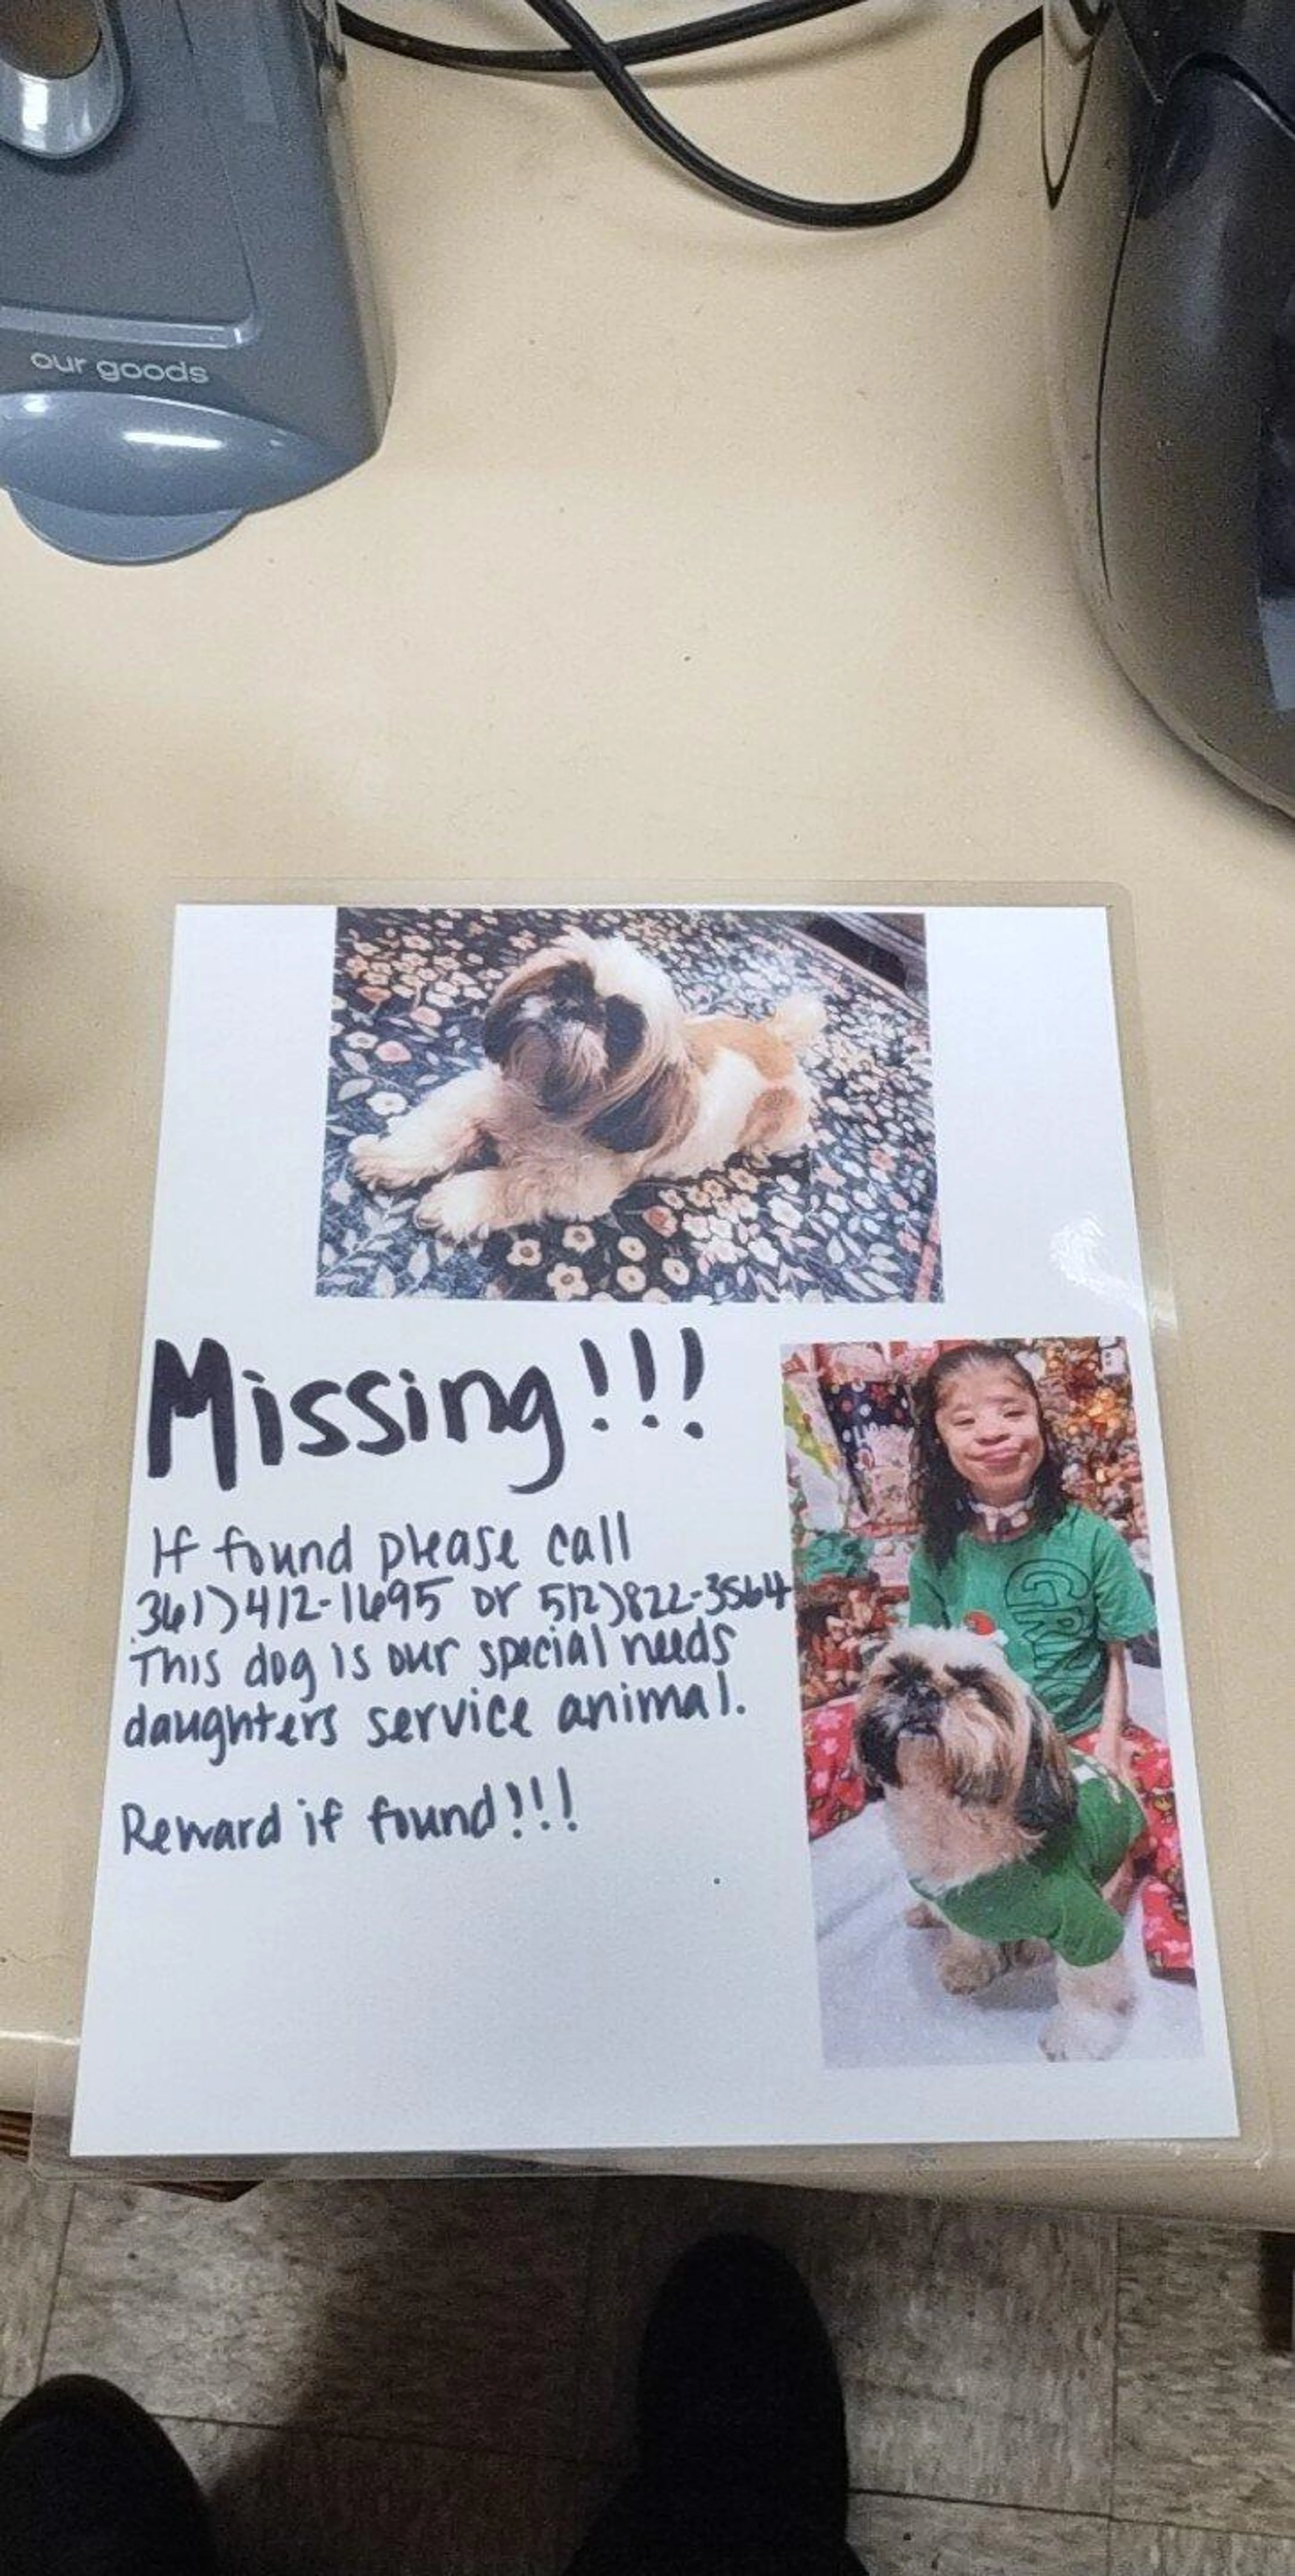 our goods
Missing!!!
If found please call
361)412-1695 or 512)822-3564
This dog is our special needs
daughters service animal.
Reward if found!!!
GRIN